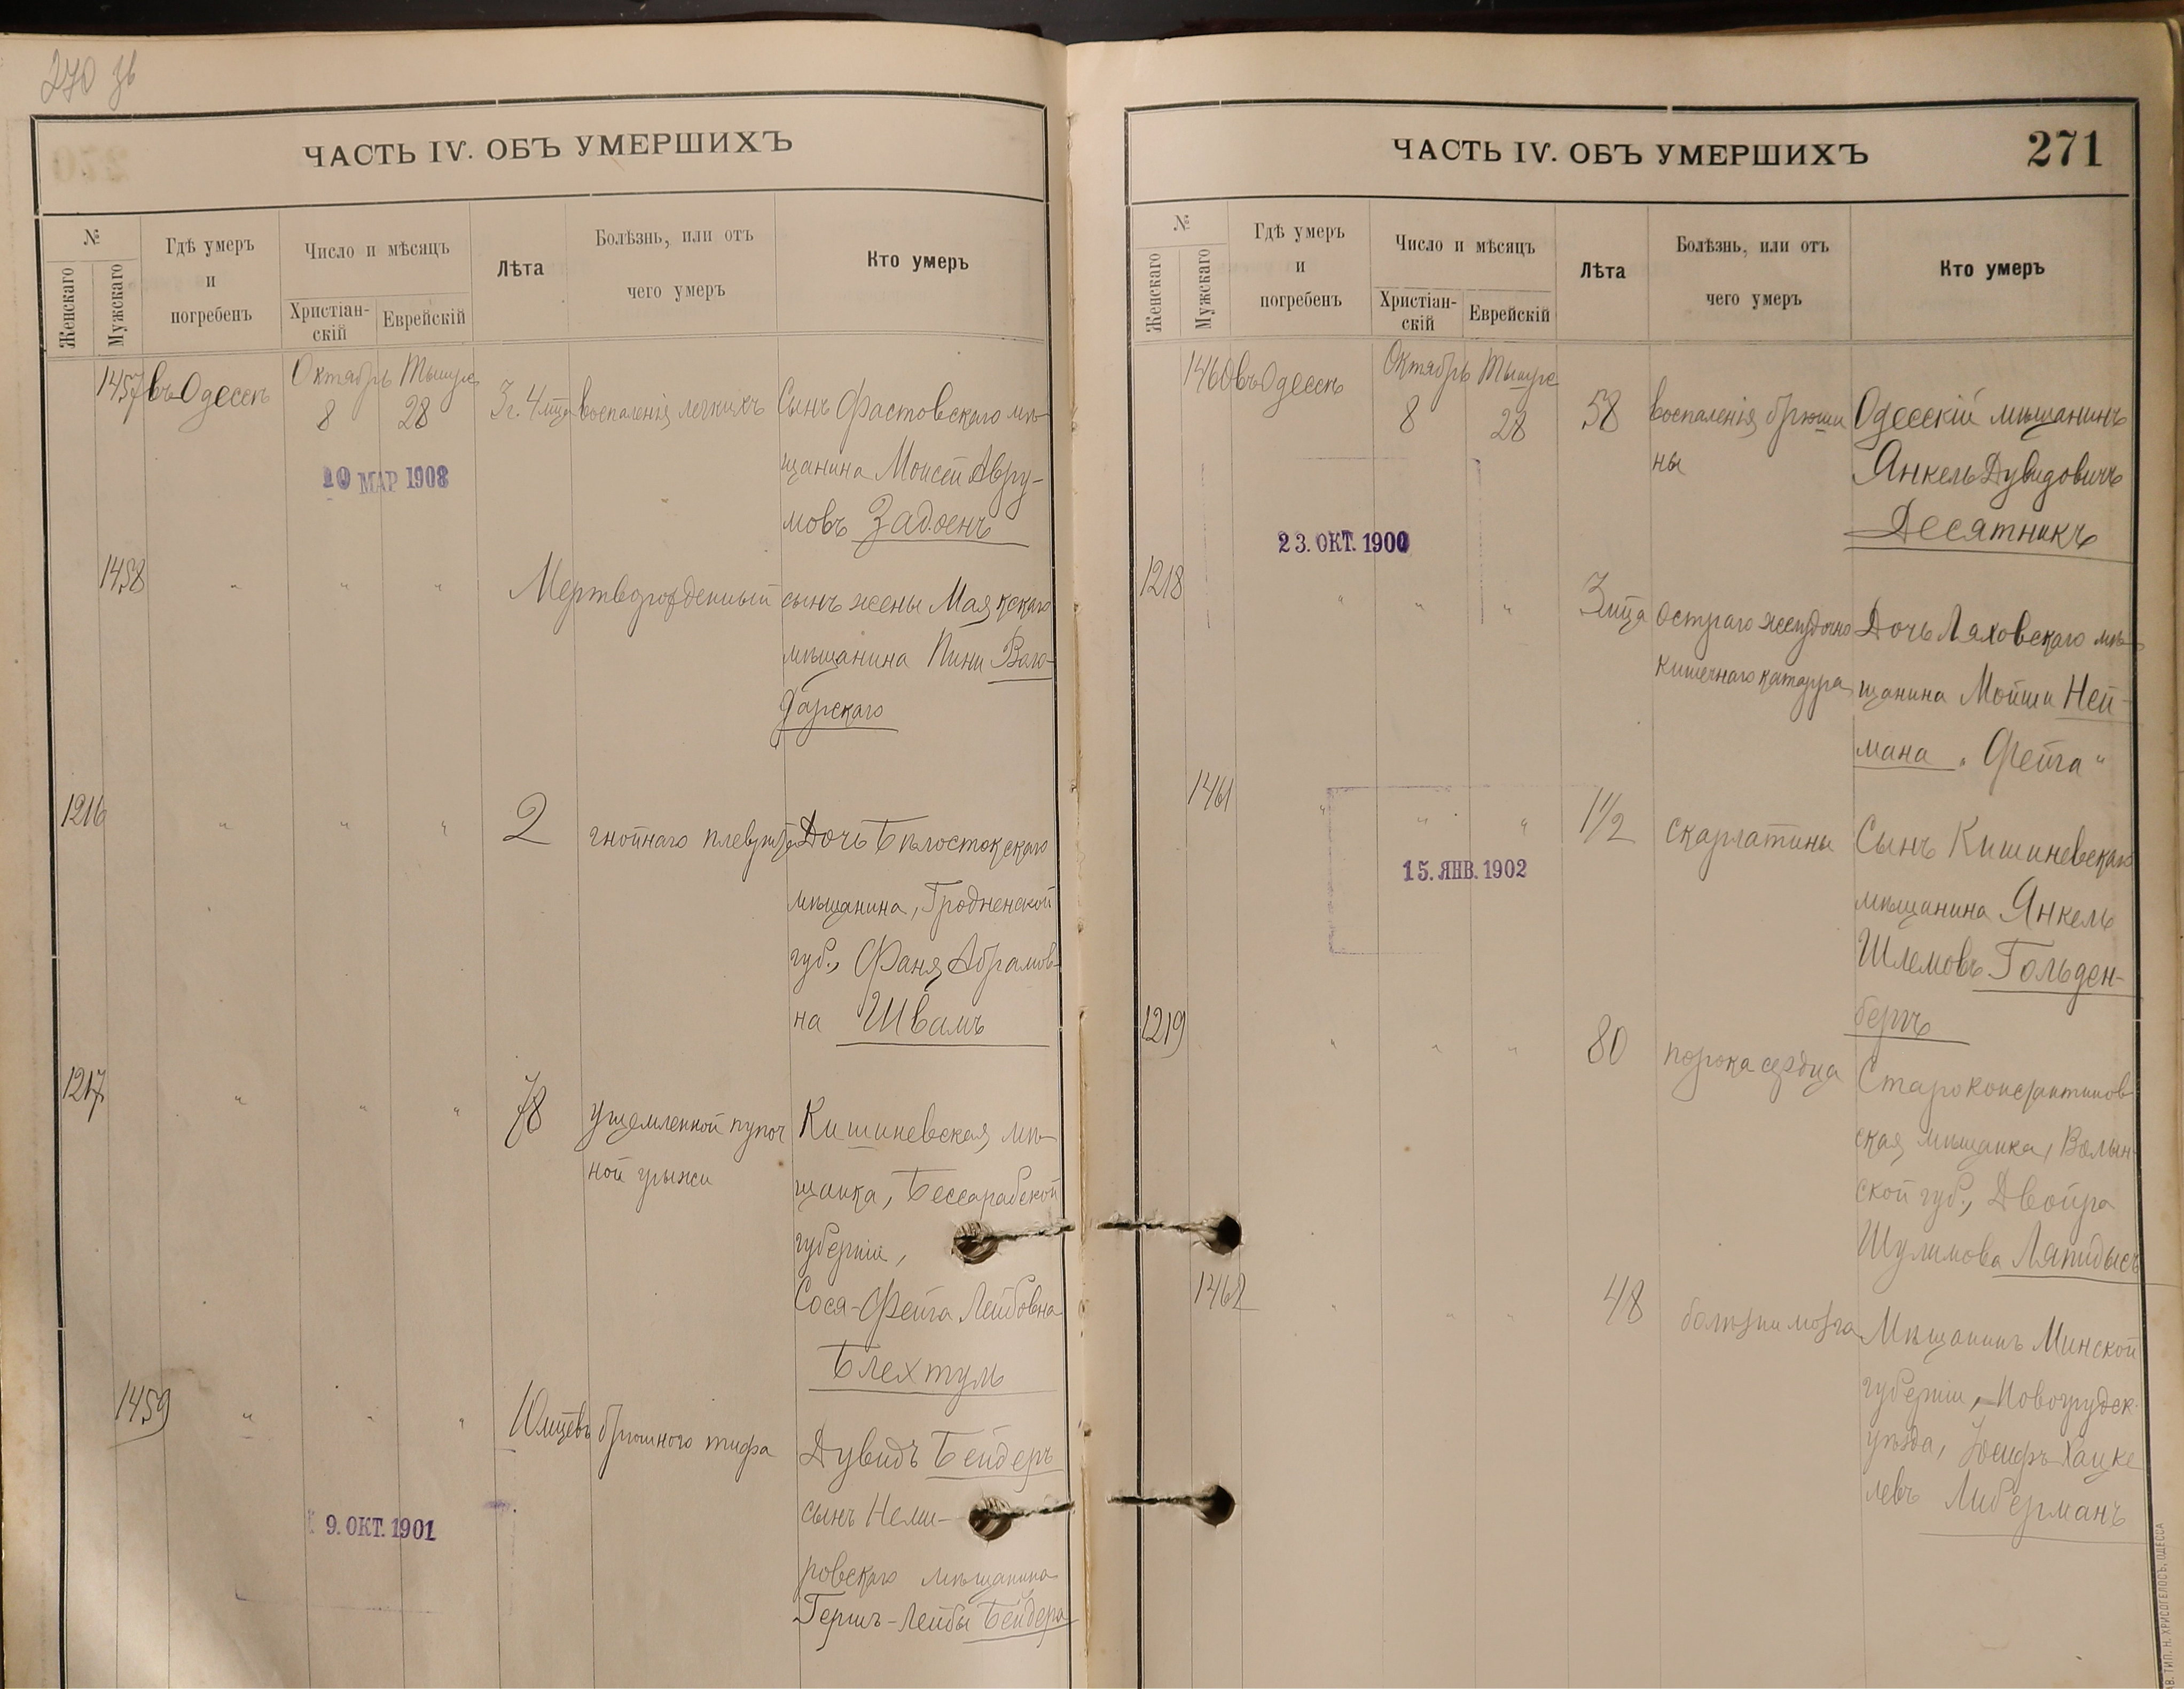 270 зв
ЧАСТЬ IV. ОБЪ УМЕРШИХЪ
№
Женскаго
Мужскаго
Гдѣ умеръ
и
погребенъ
Число и мѣсяцъ
Христіан-
скій
Еврейскій
Лѣта
Болѣзнь, или отъ
чего умеръ
Кто умеръ
1457 въ Одессѣ Октябрь Тышре
8 28 3 г. 4 мца воспаленія легкихъ Сынъ Фастовскаго мѣ-
щанина Моисей Авру-
10 МАР 1908
мовъ Задоенъ
1458 " " " Мертворожденный сынъ жены Маякскаго
мѣщанина ПиниВаго-
дарскаго
1216 " " " 2 гнойнаго плеврита Дочь Бѣлостокскаго
мѣщанина, Гродненской
губ., Фаня Абрамов-
на Швамъ
1217 " " " 78 ущемленной пупоч Кишиневская мѣ-
ной грыжи щанка, Бессарабской
губерніи,
Сося-Фейга Лейбовна
Блехтуль
1459 " " " 10 мцевъ брюшного тифа Дувидъ Бейдеръ
сынъ Неми-
9. ОКТ. 1901
ровскаго мѣщанина
Гершъ-Лейбы Бейдера
ЧАСТЬ IV. ОБЪ УМЕРШИХЪ
271
№
Женскаго
Мужскаго
Гдѣ умеръ
и
погребенъ
Число и мѣсяцъ
Христіан-
скій
Еврейскій
Лѣта
Болѣзнь, или отъ
чего умеръ
Кто умеръ
1460 въ Одессѣ Октябрь Тышре
8 28 58 воспаленія брюши Одесскій мѣщанинъ
ны Янкель Дувидовичъ
Десятникъ
23. ОКТ. 1900
1218 " " " 3 мца остраго желудочно Дочь Ляховскаго мѣ-
кишечнаго катарра щанина Мойши Ней-
мана „Фейга"
1461 " " " 1 1/2 скарлатины Сынъ Кишиневскаго
15. ЯНВ. 1902
мѣщанина Янкель
Шлемовъ Гольден-
бергъ
1219 " " " 80 порока сердца Староконстантинов
ская мѣщанка, Волын-
ской губ., Двойра
Шулимова Ляпидысъ
1462 " " " 48 болѣзни мозга Мѣщанинъ Минской
губерніи, Новогрудск.
уѣзда, Іосифъ Хацке
левъ Либерманъ
ТИП. Н. ХРИСОГЕЛОСЪ, ОДЕССА